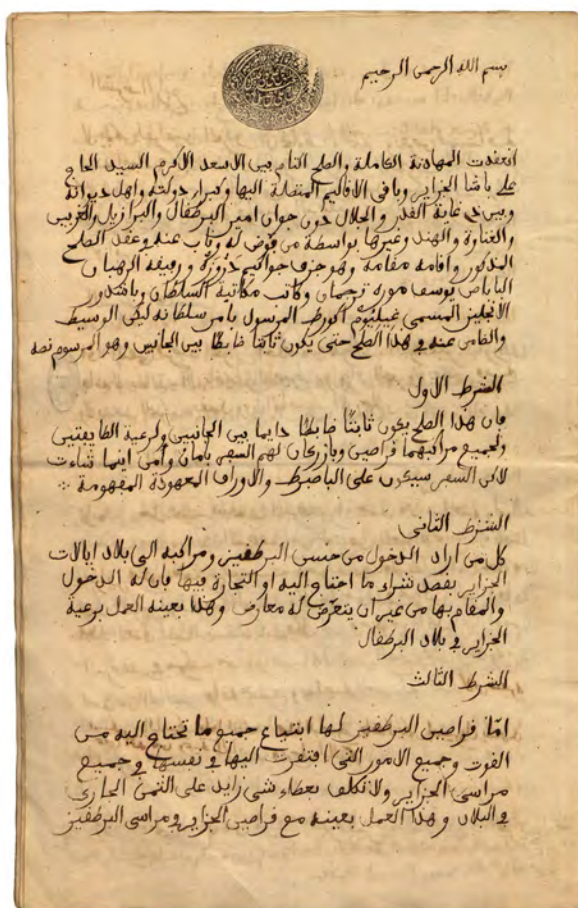 بسم الله الرحمن الرحيم
انعقدت المهادنة الكاملة والصلح التام بين الاسعد الاكرم السيد الحاج
علي باشا الجزاير وباقي الاقاليم المتصلة اليها وكبرار دولته واهل ديوانه
وبين ذي غاية القدر والجلال دون جوان امير البرطقال والبرازيل والغربيي
والهند وغيرها بواسطة من فوض له وناب عنه وعقد الصلح
المذكور واقامه مقامه وهو جزف جواكيم ورفيقه الرهبان
الباباص يوسف موره ترجمان وكاتب مكاتبة السلطان وباشدر
الانجليز المسمى المرسول بامر سلطانه ليكن الوسيط
والضامن عنه في هذا الصلح حتى يكون ثابتا ضابطا بين الجانبين وهو المرسوم نصه
الشرط الاول
فان هذا الصلح يكون ثابتا ضابطا دايما بين الجانبين ولرعية الطايفتين
ولجميع مراكبهما قراصين وبازركان لهم السفر بامان وامن اينما شاءت
لاكن السفر سيكون على الباصبرط والاوراق المعهودة المفهومة
الشرط الثاني
كل من اراد الدخول من جنس البرطقيز ومراكبه الى بلاد ايالات
الجزاير بقصد شراء ما احتاج اليه او التجارة فيها فان له الدخول
والمقام بها من غير ان يتعرض له معارض وهذا بعينه العمل برعية
الجزاير في بلاد البرطقال
الشرط الثالث
امّا قراصين البرطقيز لها ابتياع جميع ما تحتاج اليه من
القوت وجميع الامور التي افتقرت اليها في نفسها في جميع
مراسي الجزاير ولا تكلف بعطاء شي زايد على الثمن الجاري
في البلاد وهذا العمل بعينه مع قراصين الجزاير في مراسي البرطقيز